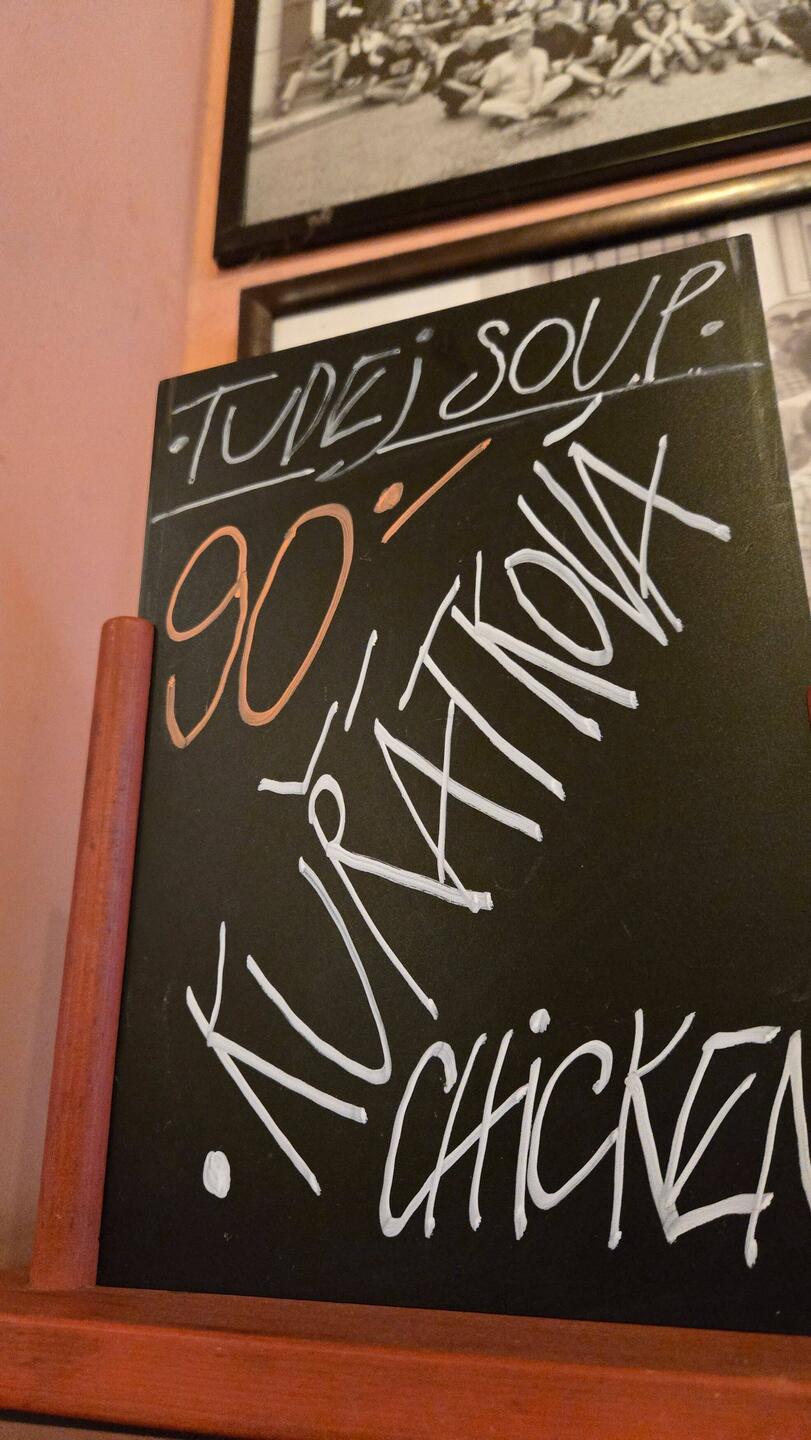 · TUDEJ SOUP ·
90·/
· KUŘÁTKOVÁ
CHICKEN